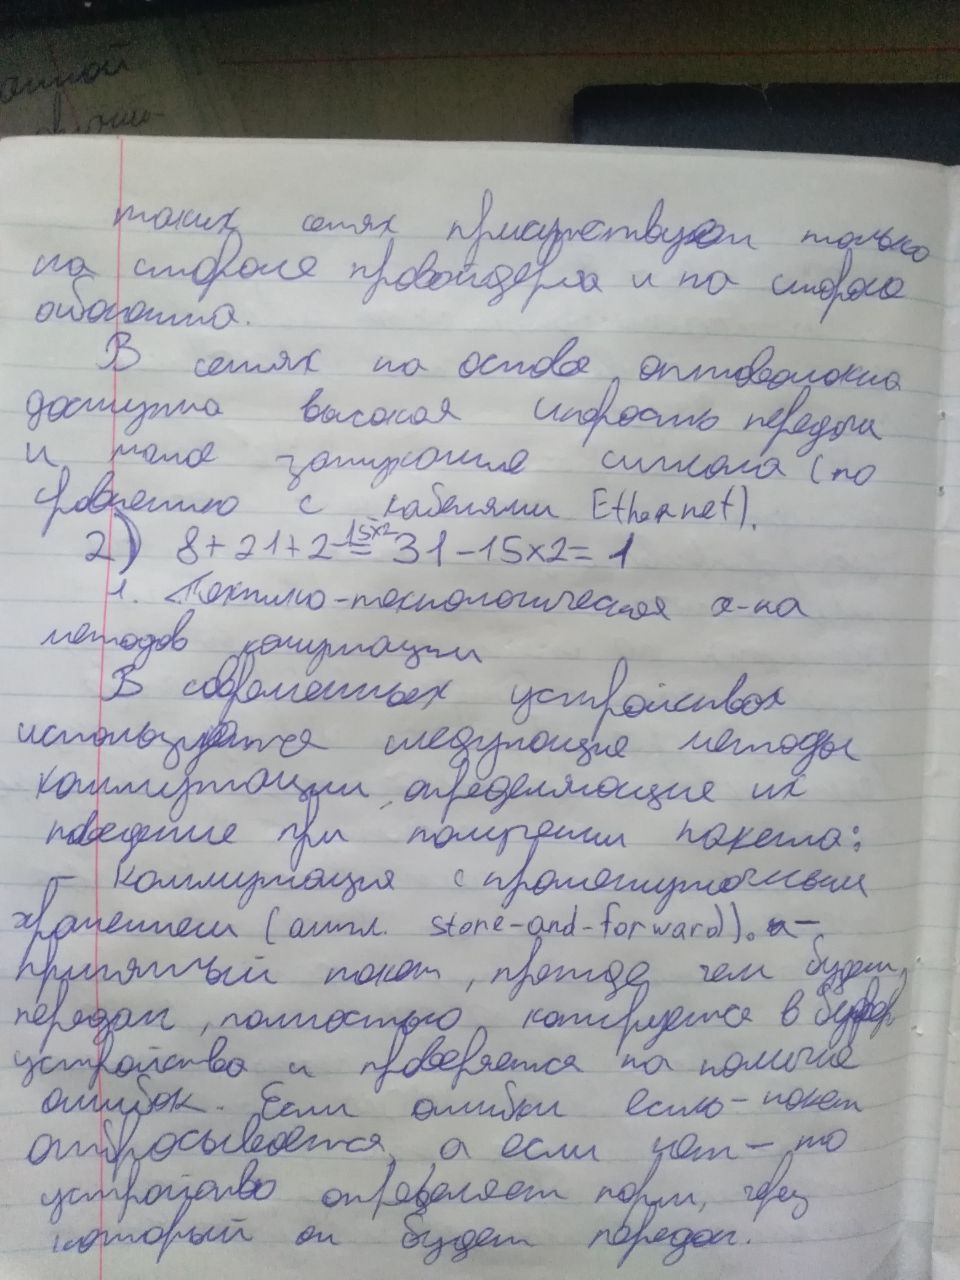 онной
таких сетях присутствует только
на стороне провайдера и на стороне
абонента.
В сетях на основе оптоволокна
доступна высокая скорость передачи
и малое затухание сигнала (по
сравнению с кабелями Ethernet).
2) 8+21+2-15x2= 31-15x2=1
1. Технико-технологическая х-ка
методов комутации
В современных устройствах
используются следующие методы
коммутации, определяющие их
поведение при получении пакета:
- Коммутация с промежуточным
хранением (англ. store-and-forward). -
Принятый пакет, прежде чем будет
передан, полностью копируется в буфер
устройства и проверяется на наличие
ошибок. Если ошибки есть - пакет
отбрасывается, а если нет - то
устройство определяет порт, через
который он будет передан.